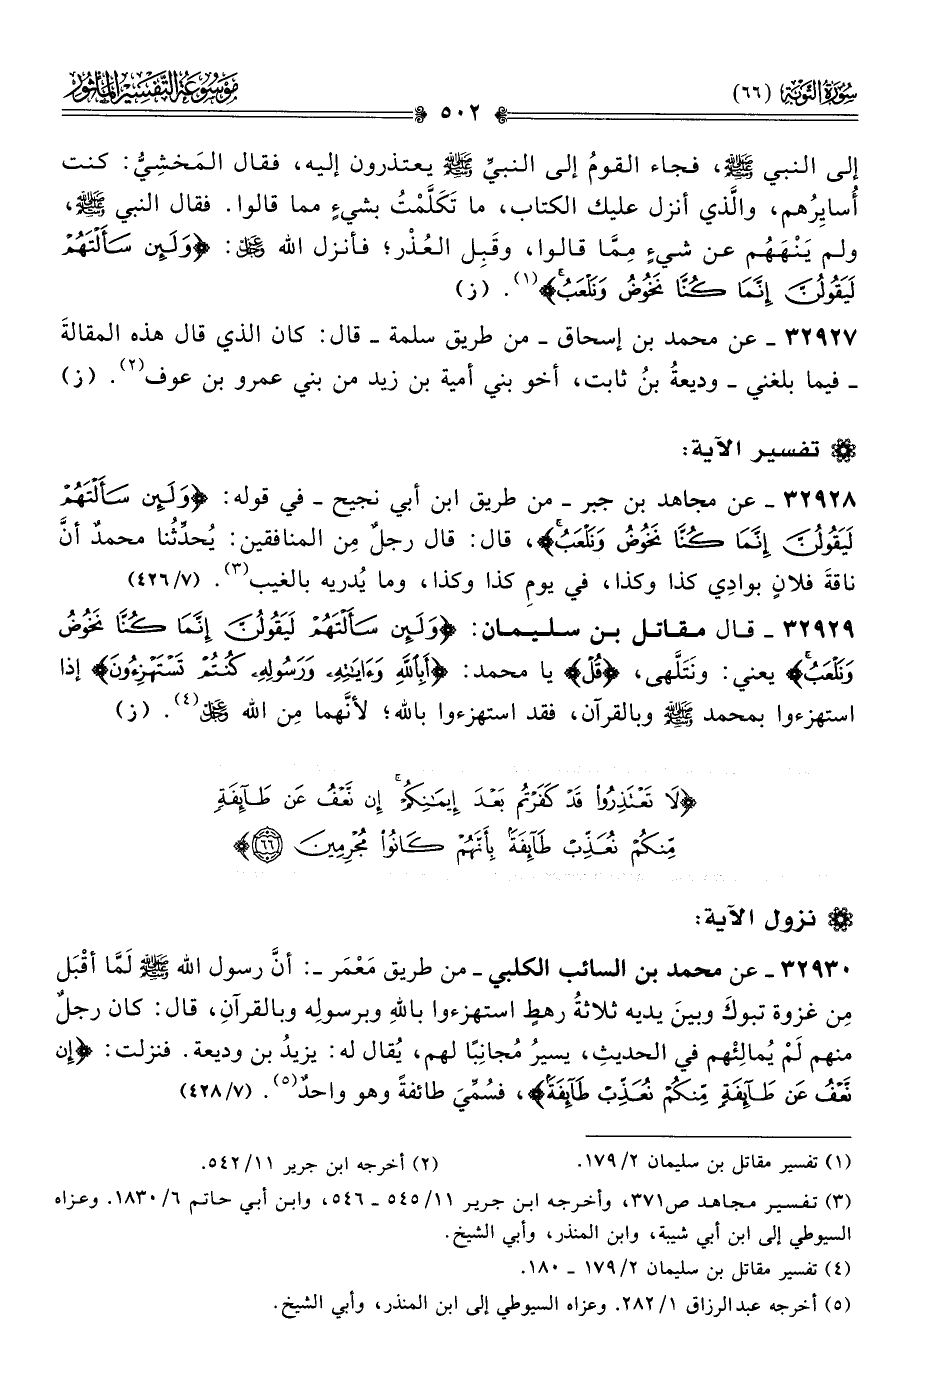 سورة التوبة (٦٦)
٥٠٢
موسوعة التفسير المأثور
إلى النبي ﷺ، فجاء القومُ إلى النبيِّ ﷺ يعتذرون إليه، فقال المَخشِيُّ: كنت
أُسايِرُهم، والَّذي أنزل عليك الكتاب، ما تَكَلَّمْتُ بشيءٍ مما قالوا. فقال النبي ﷺ،
ولم يَنْهَهُم عن شيءٍ مِمَّا قالوا، وقَبِل العُذْر؛ فأنزل الله ﷿: ﴿وَلَئِن سَأَلْتَهُمْ
لَيَقُولُنَّ إِنَّمَا كُنَّا نَخُوضُ وَنَلْعَبُ ۚ﴾(١). (ز)
٣٢٩٢٧ ـ عن محمد بن إسحاق ـ من طريق سلمة ـ قال: كان الذي قال هذه المقالةَ
ـ فيما بلغني ـ وديعةُ بنُ ثابت، أخو بني أمية بن زيد من بني عمرو بن عوف(٢). (ز)
تفسير الآية:
٣٢٩٢٨ ـ عن مجاهد بن جبر ـ من طريق ابن أبي نجيح ـ في قوله: ﴿وَلَئِن سَأَلْتَهُمْ
لَيَقُولُنَّ إِنَّمَا كُنَّا نَخُوضُ وَنَلْعَبُ ۚ﴾، قال: قال رجلٌ مِن المنافقين: يُحدِّثُنا محمدٌ أنَّ
ناقةَ فلانٍ بوادِي كذا وكذا، في يومِ كذا وكذا، وما يُدريه بالغيب(٣). (٤٢٦/٧)
٣٢٩٢٩ ـ قال مقاتل بن سليمان: ﴿وَلَئِن سَأَلْتَهُمْ لَيَقُولُنَّ إِنَّمَا كُنَّا نَخُوضُ
وَنَلْعَبُ ۚ﴾ يعني: ونَتَلَّهى، ﴿قُلْ﴾ يا محمد: ﴿أَبِاللَّهِ وَءَايَٰتِهِۦ وَرَسُولِهِۦ كُنتُمْ تَسْتَهْزِءُونَ﴾ إذا
استهزءوا بمحمد ﷺ وبالقرآن، فقد استهزءوا بالله؛ لأنَّهما مِن الله ﷿(٤). (ز)
﴿لَا تَعْتَذِرُوا۟ قَدْ كَفَرْتُم بَعْدَ إِيمَٰنِكُمْ ۚ إِن نَّعْفُ عَن طَآئِفَةٍ
مِّنكُمْ نُعَذِّبْ طَآئِفَةًۢ بِأَنَّهُمْ كَانُوا۟ مُجْرِمِينَ ٦٦﴾
نزول الآية:
٣٢٩٣٠ ـ عن محمد بن السائب الكلبي ـ من طريق مَعْمَر ـ: أنَّ رسول الله ﷺ لَمَّا أقْبَل
مِن غزوة تبوكَ وبينَ يديه ثلاثةُ رهطٍ استهزءوا باللهِ وبرسولِه وبالقرآنِ، قال: كان رجلٌ
منهم لَمْ يُمالِئْهم في الحديثِ، يسيرُ مُجانِبًا لهم، يُقال له: يزيدُ بن وديعة. فنزلت: ﴿إِن
نَّعْفُ عَن طَآئِفَةٍ مِّنكُمْ نُعَذِّبْ طَآئِفَةًۢ﴾، فسُمِّيَ طائفةً وهو واحدٌ(٥). (٤٢٨/٧)
(١) تفسير مقاتل بن سليمان ١٧٩/٢. (٢) أخرجه ابن جرير ٥٤٢/١١.
(٣) تفسير مجاهد ص٣٧١، وأخرجه ابن جرير ٥٤٥/١١ ـ ٥٤٦، وابن أبي حاتم ١٨٣٠/٦. وعزاه
السيوطي إلى ابن أبي شيبة، وابن المنذر، وأبي الشيخ.
(٤) تفسير مقاتل بن سليمان ١٧٩/٢ ـ ١٨٠.
(٥) أخرجه عبدالرزاق ٢٨٢/١. وعزاه السيوطي إلى ابن المنذر، وأبي الشيخ.